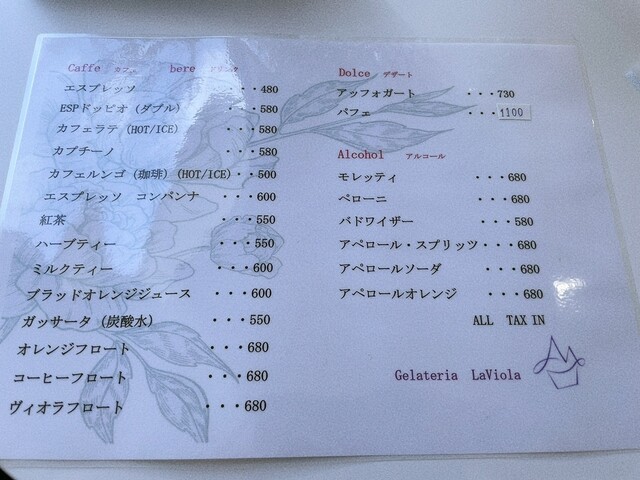 Caffe カフェ bere ドリンク
エスプレッソ ・・・480
ESPドッピオ(ダブル) ・・・580
カフェラテ(HOT/ICE) ・・・580
カプチーノ ・・・580
カフェルンゴ(珈琲)(HOT/ICE)・・500
エスプレッソ コンパンナ ・・・600
紅茶 ・・・550
ハーブティー ・・・550
ミルクティー ・・・600
ブラッドオレンジジュース ・・・600
ガッサータ(炭酸水) ・・・550
オレンジフロート ・・・680
コーヒーフロート ・・・680
ヴィオラフロート ・・・680
Dolce デザート
アッフォガート ・・・730
パフェ ・・・1100
Alcohol アルコール
モレッティ ・・・680
ペローニ ・・・680
バドワイザー ・・・580
アペロール・スプリッツ・・・680
アペロールソーダ ・・・680
アペロールオレンジ ・・・680
ALL TAX IN
Gelateria LaViola